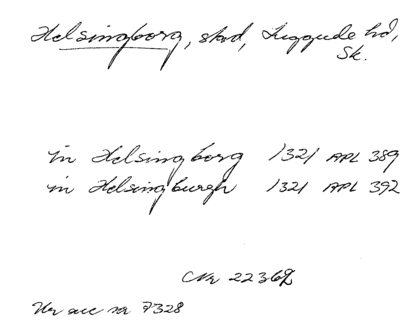 Helsingborg, stad, Luggude hd,
Sk.
in Helsingborg 1321 APL 389
in Helsingburgh 1321 APL 392
CNr 22362
Ur acc nr 7328